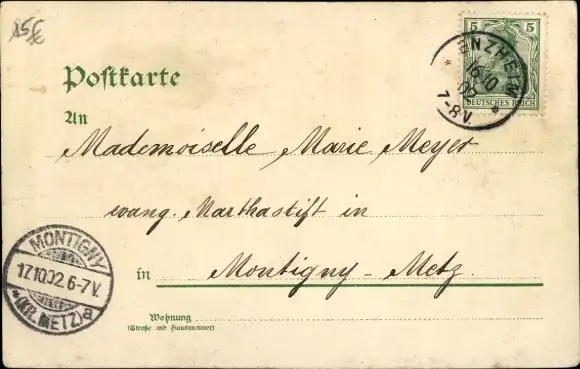 85 €
5 5
DEUTSCHES REICH
ENZHEIM
16 10
02
7-8V.
Postkarte
An
Mademoiselle Marie Meyer
evang. Marthastift in
in Montigny-Metz.
MONTIGNY
17.10.02.6-7V.
*(KR. METZ)a
Wohnung
(Straße und Hausnummer)